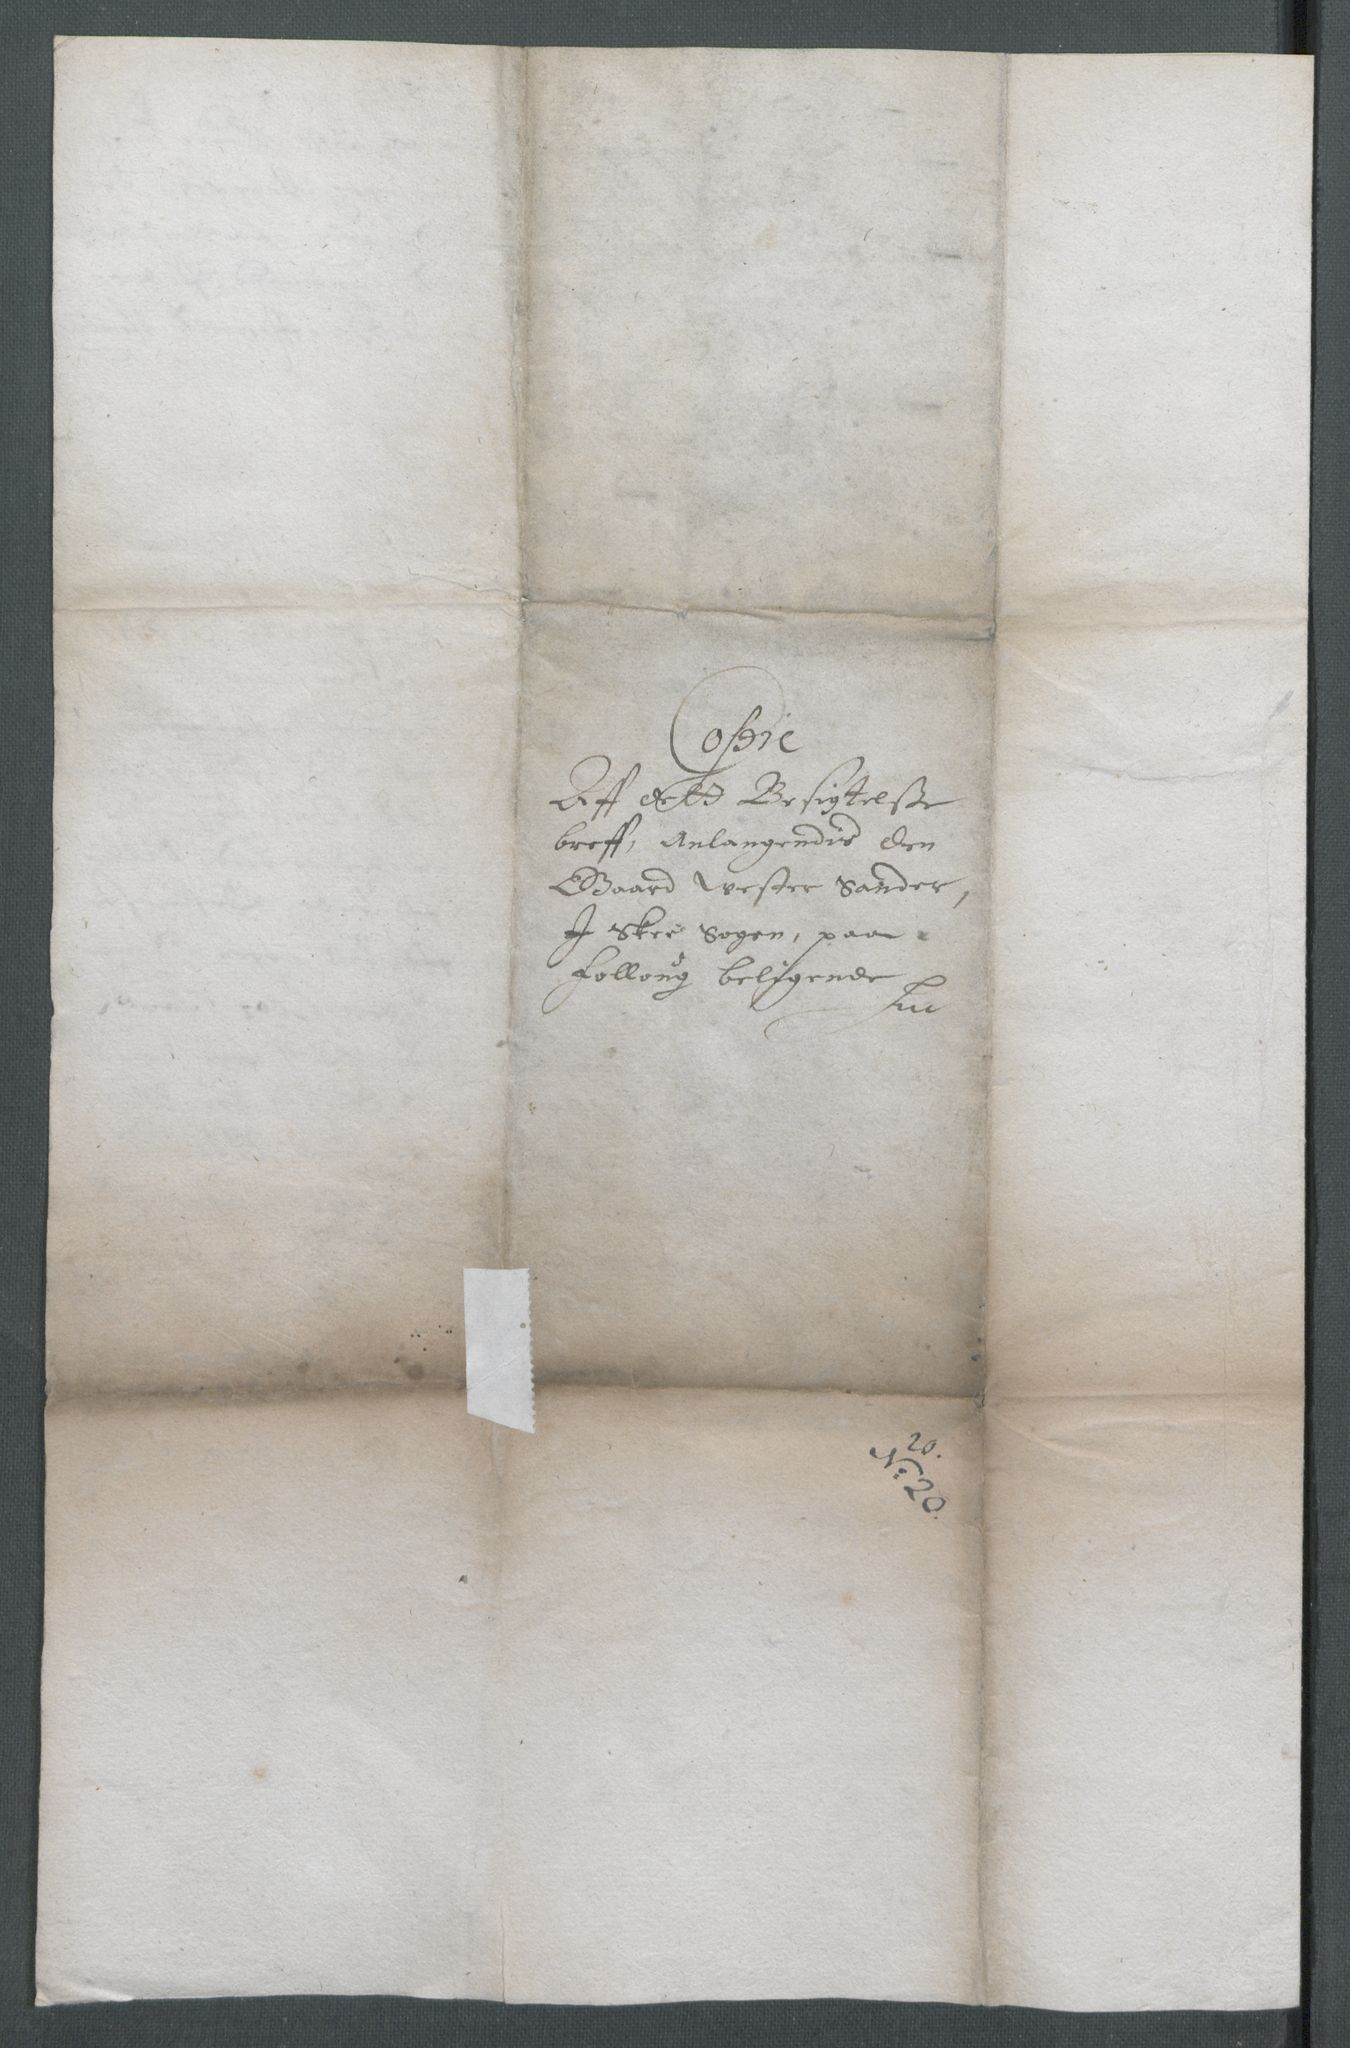 Copie
Affett Besigtelsse
breff, Anlangendis den
Gaard wester Sander,
I Skee Sogen, paa
Folloug beligende
20.
No: 20.